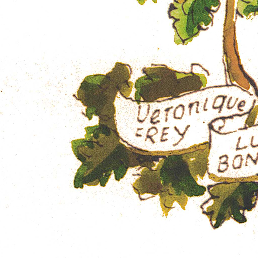 Veronique
FREY
LU
BON